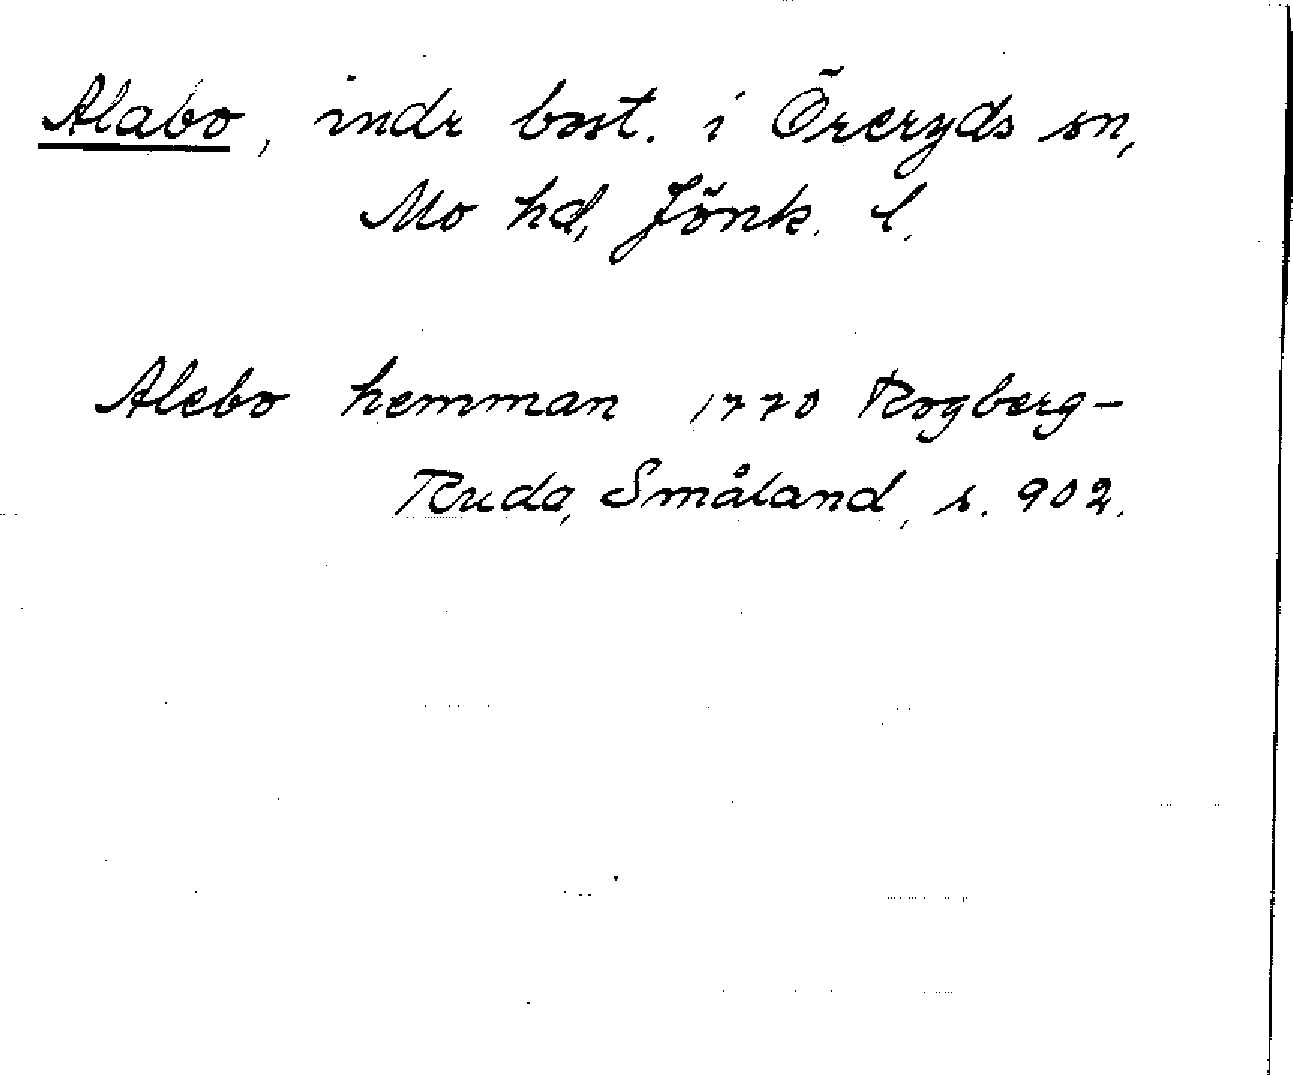 Alabo, indr bost. i Öreryds sn,
Mo hd, Jönk. l.
Alebo hemman 1770 Rogberg-
Ruda, Småland, s. 902.